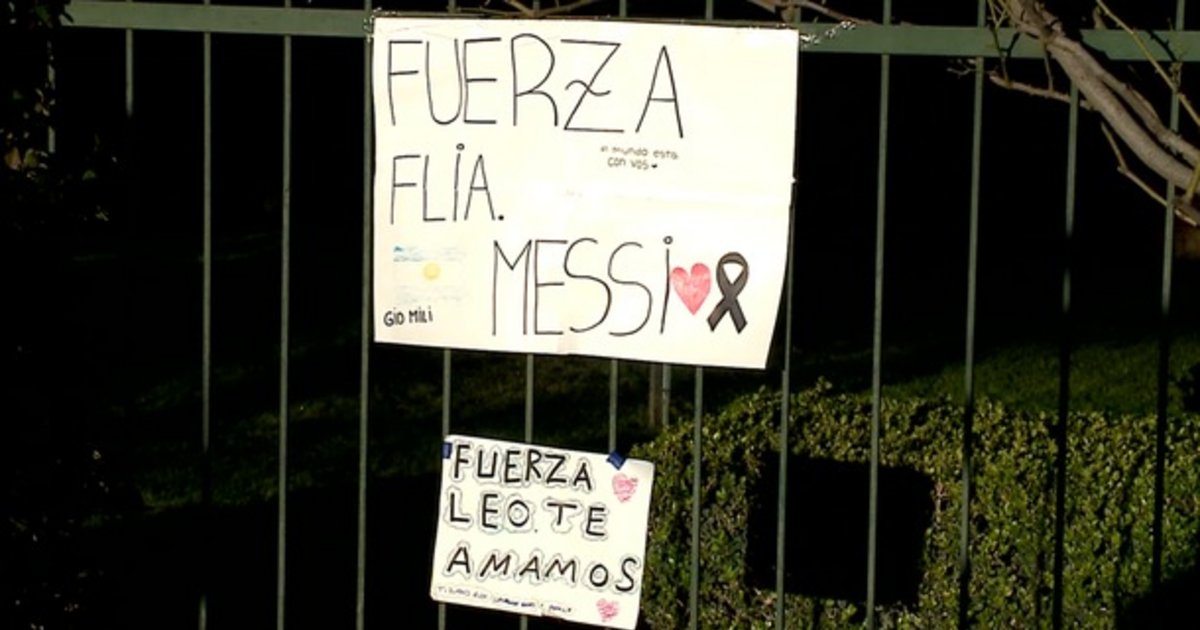 FUERZA
el mundo esta
con vos
FLIA.
MESSI
GIO MILI
FUERZA
LEO. TE
AMAMOS